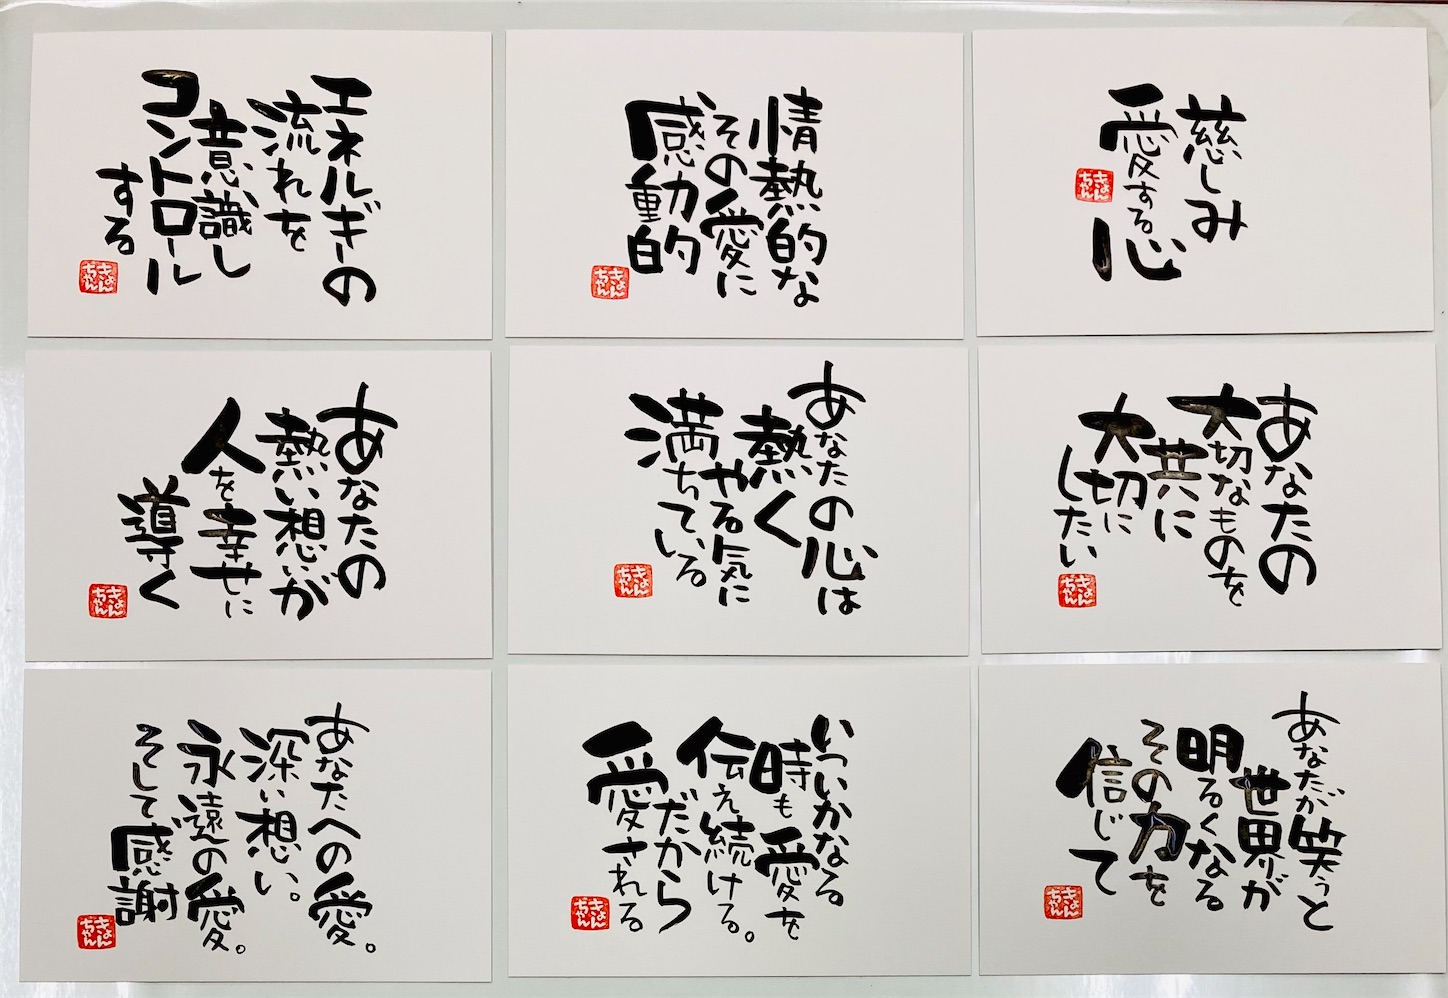 エネルギーの
流れを
意識し
コントロール
する
きょん
ちゃん
情熱的な
その愛に
感動的
きょん
ちゃん
慈しみ
愛する
心
きょん
ちゃん
あなたの
熱い想いが
人を幸せに
導く
きょん
ちゃん
あなたの心は
熱く
やる気に
満ちている
きょん
ちゃん
あなたの
大切なものを
共に
大切に
したい
きょん
ちゃん
あなたへの愛。
深い想い。
永遠の愛。
そして感謝
きょん
ちゃん
いついかなる
時も愛を
伝え続ける。
だから
愛される
きょん
ちゃん
あなたが笑うと
世界が
明るくなる
その力を
信じて
きょん
ちゃん